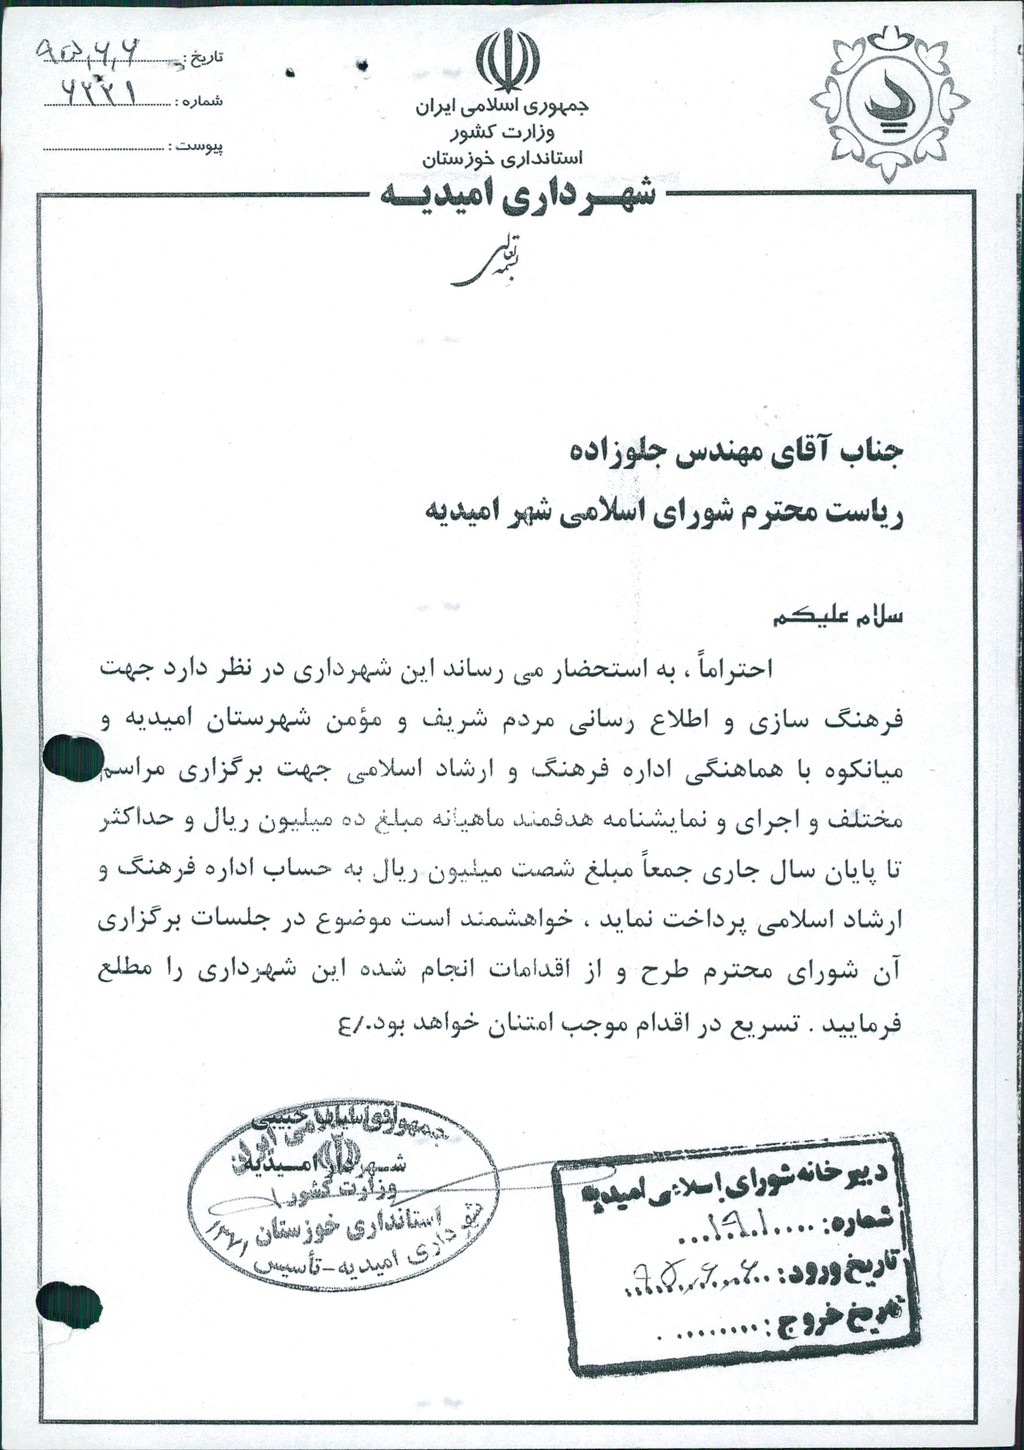 تاریخ : ۹۵,۶,۶
شماره : ۶۲۲۱
پیوست :
جمهوری اسلامی ایران
وزارت کشور
استانداری خوزستان
شهرداری امیدیه
بسمه تعالی
جناب آقای مهندس جلوزاده
ریاست محترم شورای اسلامی شهر امیدیه
سلام علیکم
احتراماً ، به استحضار می رساند این شهرداری در نظر دارد جهت
فرهنگ سازی و اطلاع رسانی مردم شریف و مؤمن شهرستان امیدیه و
میانکوه با هماهنگی اداره فرهنگ و ارشاد اسلامی جهت برگزاری مراسم
مختلف و اجرای و نمایشنامه هدفمند ماهیانه مبلغ ده میلیون ریال و حداکثر
تا پایان سال جاری جمعاً مبلغ شصت میلیون ریال به حساب اداره فرهنگ و
ارشاد اسلامی پرداخت نماید ، خواهشمند است موضوع در جلسات برگزاری
آن شورای محترم طرح و از اقدامات انجام شده این شهرداری را مطلع
فرمایید . تسریع در اقدام موجب امتنان خواهد بود./ع
حبیبی
شهردار امیدیه
جمهوری اسلامی ایران
وزارت کشور
استانداری خوزستان
شهرداری امیدیه - تأسیس ۱۳۷۱
دبیرخانه شورای اسلامی امیدیه
شماره : ۱۹۱
تاریخ ورود : ۹۵,۶,۶
تاریخ خروج :